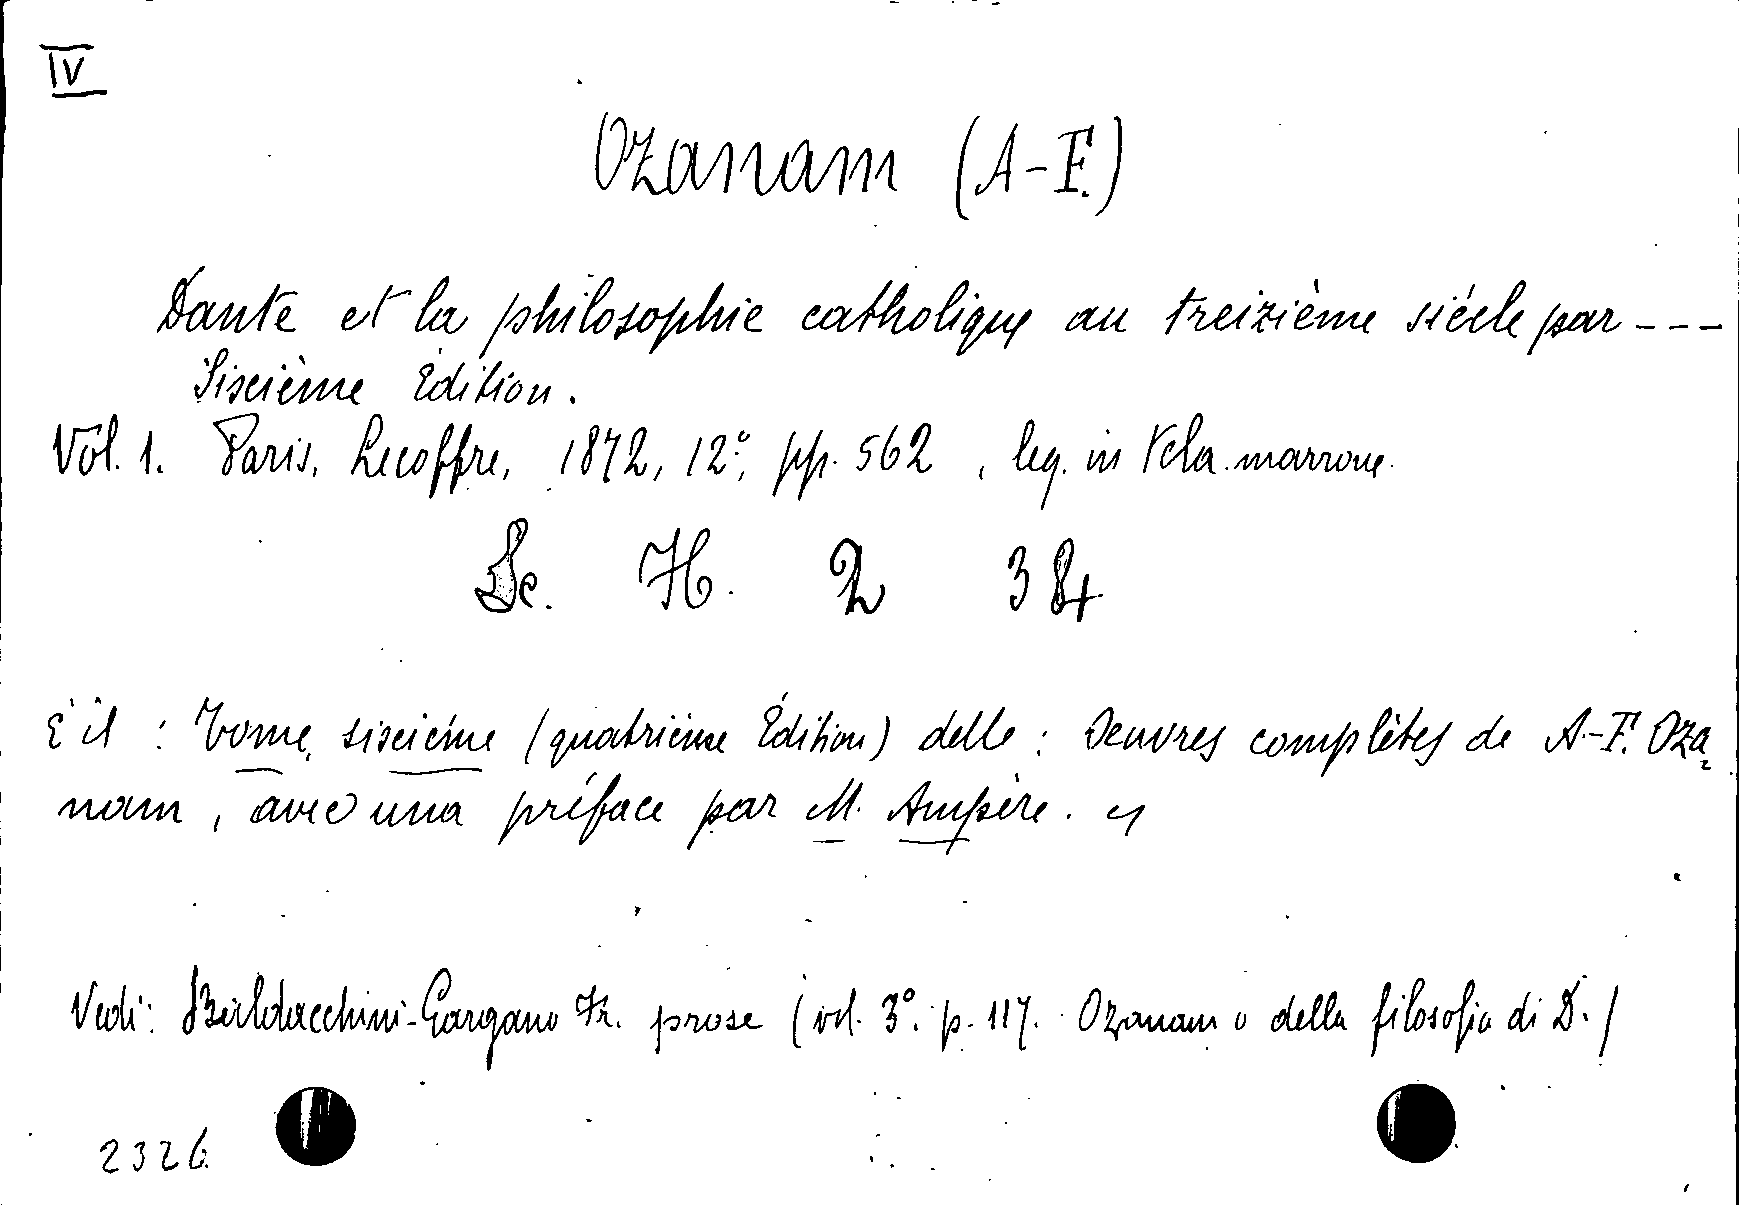 IV
Ozanam (A-F.)
Dante et la philosophie catholique au treizième siécle par ---
Siscième Edition.
Vol. 1. Paris, Lecoffre, 1872, 12°, pp. 562, leg. in tela marrone.
Sc. H. 2 38
È il : Tome siscième (quatrième Édition) delle : Oeuvres complètes de A.-F. Oza
nam, avec una préface par M. Ampère.
Vedi: Baldacchini-Gargano Fr. prose (vol. 3°. p. 117. Ozanam o della filosofia di D.)
2326